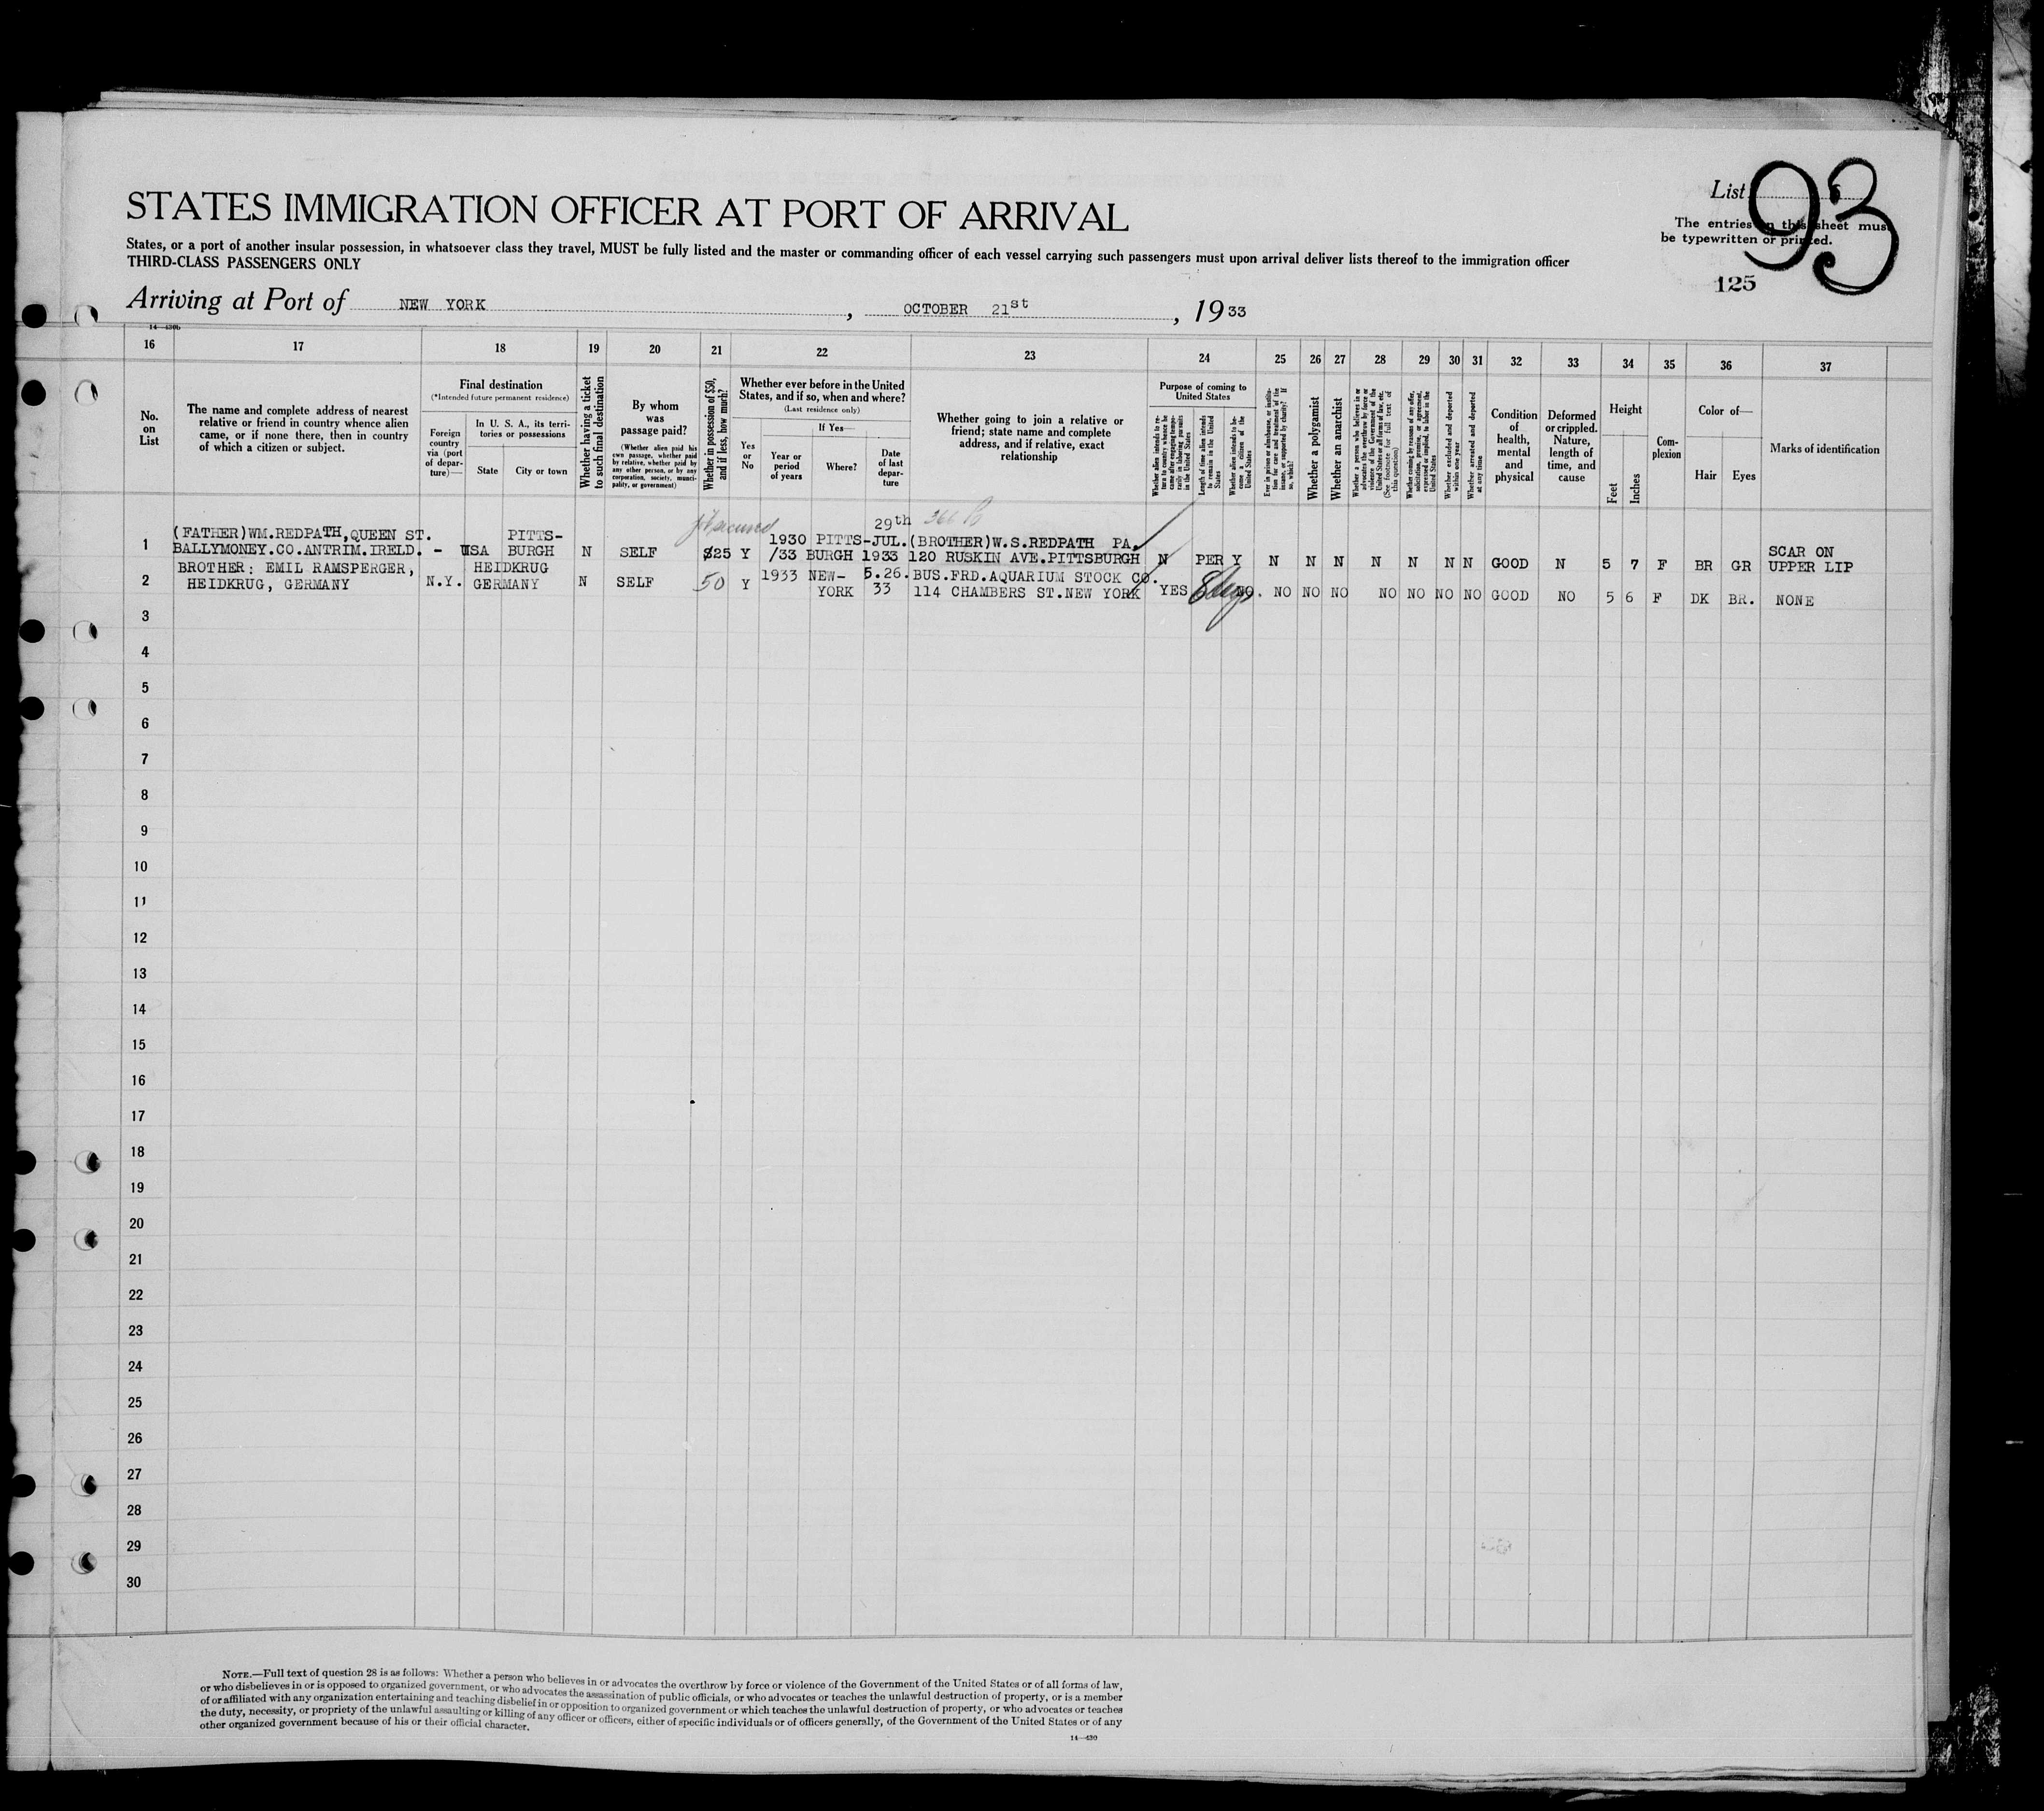 STATES IMMIGRATION OFFICER AT PORT OF ARRIVAL
List 93
The entries on this sheet must
be typewritten or printed.
125
States, or a port of another insular possession, in whatsoever class they travel, MUST be fully listed and the master or commanding officer of each vessel carrying such passengers must upon arrival deliver lists thereof to the immigration officer
THIRD-CLASS PASSENGERS ONLY
Arriving at Port of NEW YORK, OCTOBER 21st, 1933
14—430b
16 17 18 19 20 21 22 23 24 25 26 27 28 29 30 31 32 33 34 35 36 37
No.
on
List
The name and complete address of nearest
relative or friend in country whence alien
came, or if none there, then in country
of which a citizen or subject.
Final destination
(*Intended future permanent residence)
Foreign
country
via (port
of depar-
ture)—
In U. S. A., its terri-
tories or possessions
State
City or town
Whether having a ticket
to such final destination
By whom
was
passage paid?
(Whether alien paid his
own passage, whether paid
by relative, whether paid by
any other person, or by any
corporation, society, munici-
pality, or government)
Whether in possession of $50,
and if less, how much?
Whether ever before in the United
States, and if so, when and where?
(Last residence only)
Yes
or
No
If Yes—
Year or
period
of years
Where?
Date
of last
depar-
ture
Whether going to join a relative or
friend; state name and complete
address, and if relative, exact
relationship
Purpose of coming to
United States
Whether alien intends to re-
turn to country whence he
came after engaging tempo-
rarily in laboring pursuits
in the United States
Length of time alien intends
to remain in the United
States
Whether alien intends to be-
come a citizen of the
United States
Ever in prison or almshouse, or institu-
tion for care and treatment of the
insane, or supported by charity? If
so, which?
Whether a polygamist
Whether an anarchist
Whether a person who believes in or
advocates the overthrow by force or
violence of the Government of the
United States or all forms of law, etc.
(See footnote for full text of
this question)
Whether coming by reasons of any offer,
solicitation, promise, or agreement,
expressed or implied, to labor in the
United States
Whether excluded and deported
within one year
Whether arrested and deported
at any time
Condition
of
health,
mental
and
physical
Deformed
or crippled.
Nature,
length of
time, and
cause
Height
Feet
Inches
Com-
plexion
Color of—
Hair
Eyes
Marks of identification
(FATHER)WM.REDPATH,QUEEN ST. PITTS- 29th
1 BALLYMONEY.CO.ANTRIM.IRELD. - USA BURGH N SELF $25 Y 1930/33 PITTS-BURGH JUL. 1933 (BROTHER)W.S.REDPATH PA. 120 RUSKIN AVE.PITTSBURGH N PER Y N N N N N N N GOOD N 5 7 F BR GR SCAR ON UPPER LIP
BROTHER: EMIL RAMSPERGER, HEIDKRUG
2 HEIDKRUG, GERMANY N.Y. GERMANY N SELF 50 Y 1933 NEW-YORK 5.26.33 BUS.FRD.AQUARIUM STOCK CO. 114 CHAMBERS ST.NEW YORK YES NO. NO NO NO NO NO NO NO GOOD NO 5 6 F DK BR. NONE
3
4
5
6
7
8
9
10
11
12
13
14
15
16
17
18
19
20
21
22
23
24
25
26
27
28
29
30
NOTE.—Full text of question 28 is as follows: Whether a person who believes in or advocates the overthrow by force or violence of the Government of the United States or of all forms of law,
or who disbelieves in or is opposed to organized government, or who advocates the assassination of public officials, or who advocates or teaches the unlawful destruction of property, or is a member
of or affiliated with any organization entertaining and teaching disbelief in or opposition to organized government or which teaches the unlawful destruction of property, or who advocates or teaches
the duty, necessity, or propriety of the unlawful assaulting or killing of any officer or officers, either of specific individuals or of officers generally, of the Government of the United States or of any
other organized government because of his or their official character.
14—430